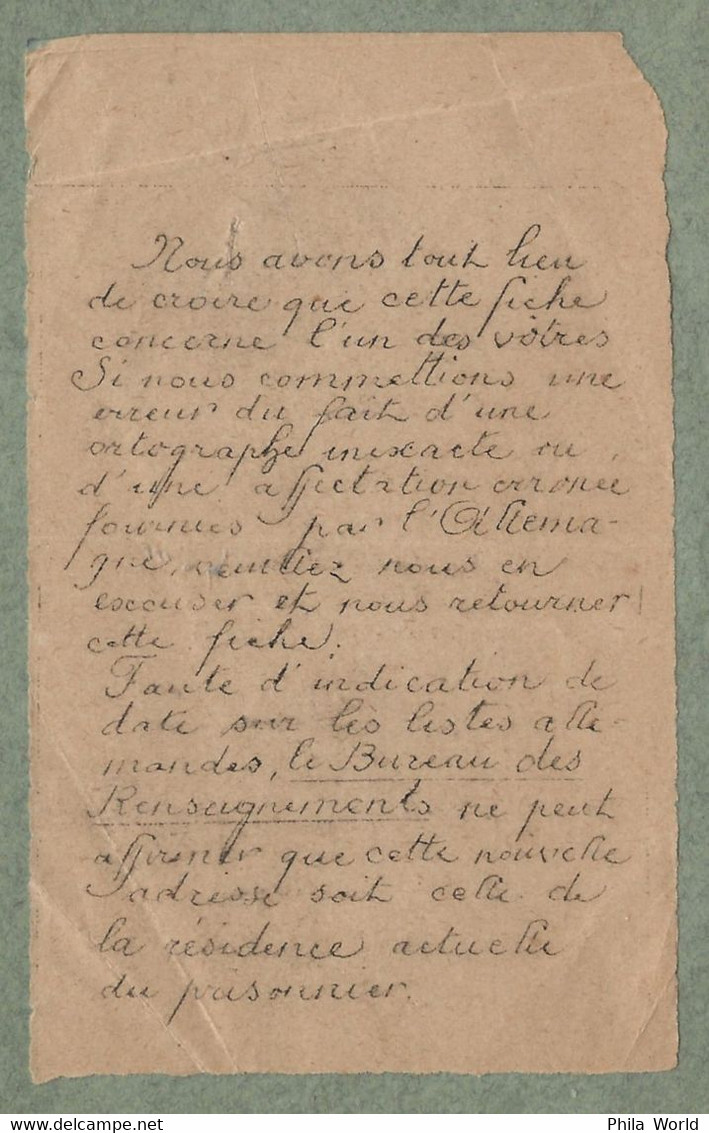 Nous avons tout lieu
de croire que cette fiche
concerne l'un des vôtres
Si nous commettions une
erreur du fait d'une
ortographe inexacte ou
d'une affectation erronée
fournies par l'Allema-
gne, veuillez nous en
excuser et nous retourner
cette fiche.
Faute d'indication de
date sur les listes alle-
mandes, le Bureau des
Renseignements ne peut
affirmer que cette nouvelle
adresse soit celle de
la résidence actuelle
du prisonnier.
Phila World